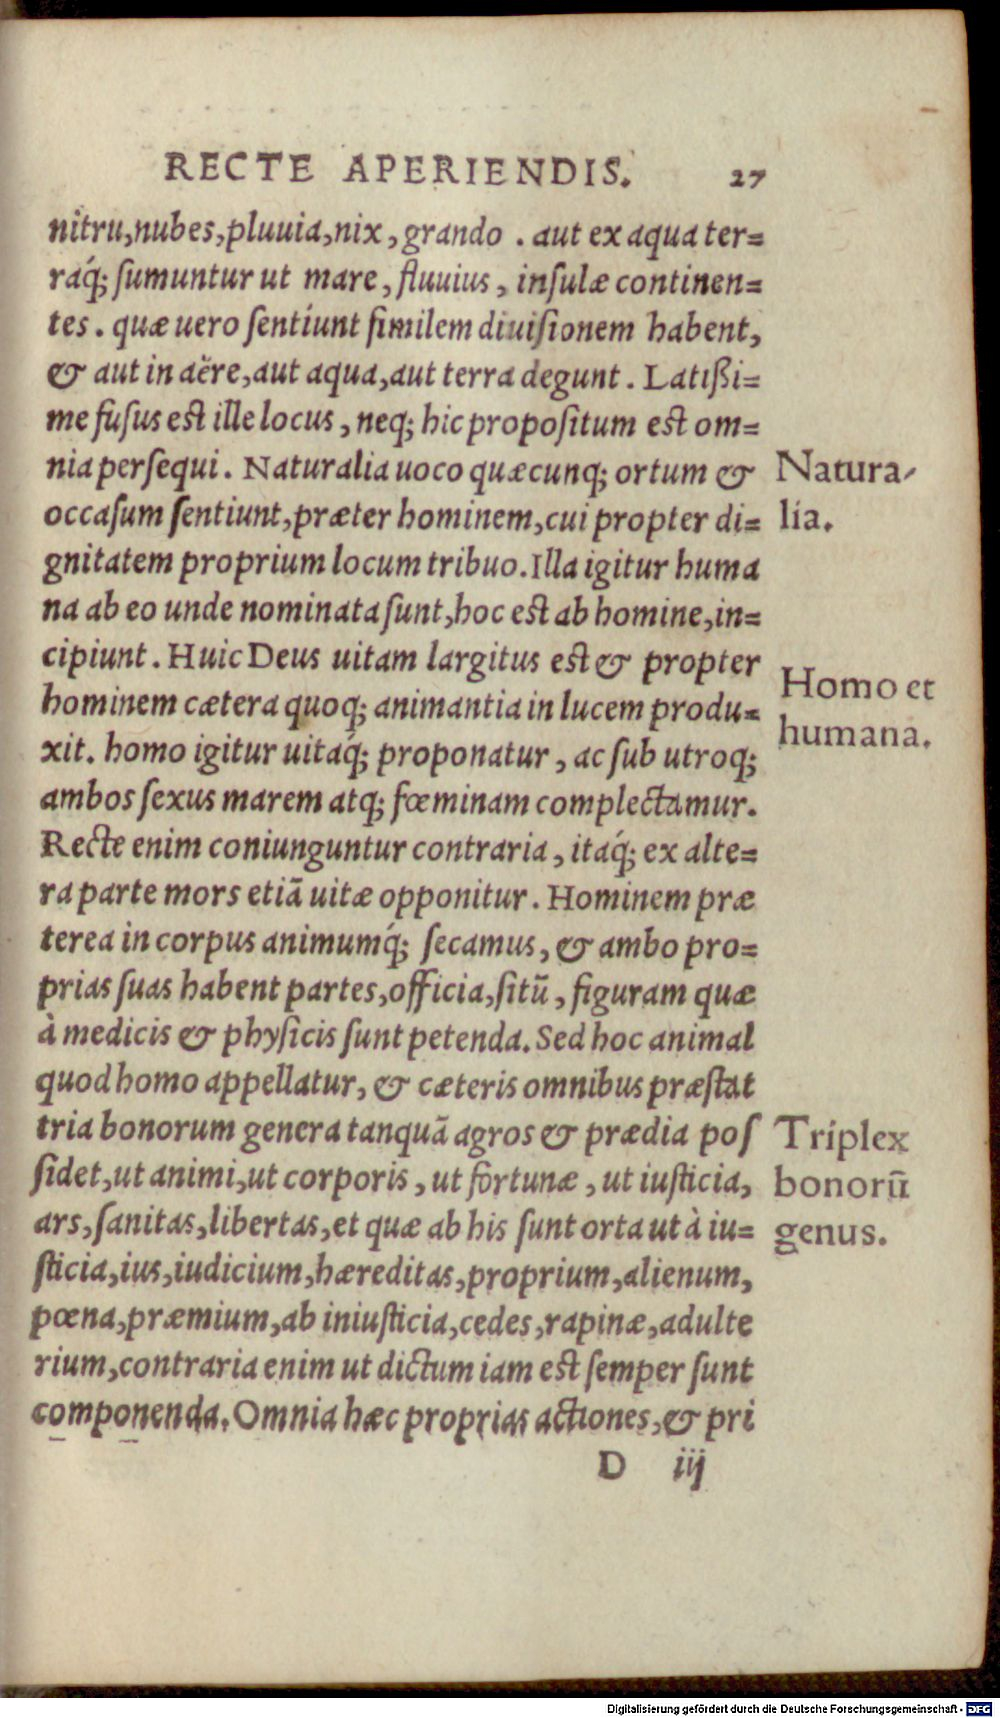 RECTE APERIENDIS. 27
nitru,nubes,pluuia,nix, grando . aut ex aqua ter=
raq́; sumuntur ut mare, fluuius, insulæ continen=
tes. quæ uero sentiunt similem diuisionem habent,
& aut in aëre,aut aqua,aut terra degunt. Latißi=
me fusus est ille locus, neq; hic propositum est om=
nia persequi. Naturalia uoco quæcunq; ortum &
Natura-
occasum sentiunt,præter hominem,cui propter di=
lia.
gnitatem proprium locum tribuo. Illa igitur huma
na ab eo unde nominata sunt,hoc est ab homine,in=
cipiunt. Huic Deus uitam largitus est & propter
Homo et
hominem cætera quoq; animantia in lucem produ=
humana.
xit. homo igitur uitaq́; proponatur, ac sub utroq;
ambos sexus marem atq; fœminam complectamur.
Recte enim coniunguntur contraria, itaq́; ex alte=
ra parte mors etiã uitæ opponitur. Hominem præ
terea in corpus animumq́; secamus, & ambo pro=
prias suas habent partes,officia,sitũ, figuram quæ
à medicis & physicis sunt petenda. Sed hoc animal
quod homo appellatur, & cæteris omnibus præstat
tria bonorum genera tanquã agros & prædia pos
Triplex
sidet,ut animi,ut corporis, ut fortunæ, ut iusticia,
bonorũ
ars,sanitas,libertas,et quæ ab his sunt orta ut à iu=
genus.
sticia,ius,iudicium,hæreditas,proprium,alienum,
pœna,præmium,ab iniusticia,cedes,rapinæ,adulte
rium,contraria enim ut dictum iam est semper sunt
componenda. Omnia hæc proprias actiones,& pri
D iij
Digitalisierung gefördert durch die Deutsche Forschungsgemeinschaft - DFG